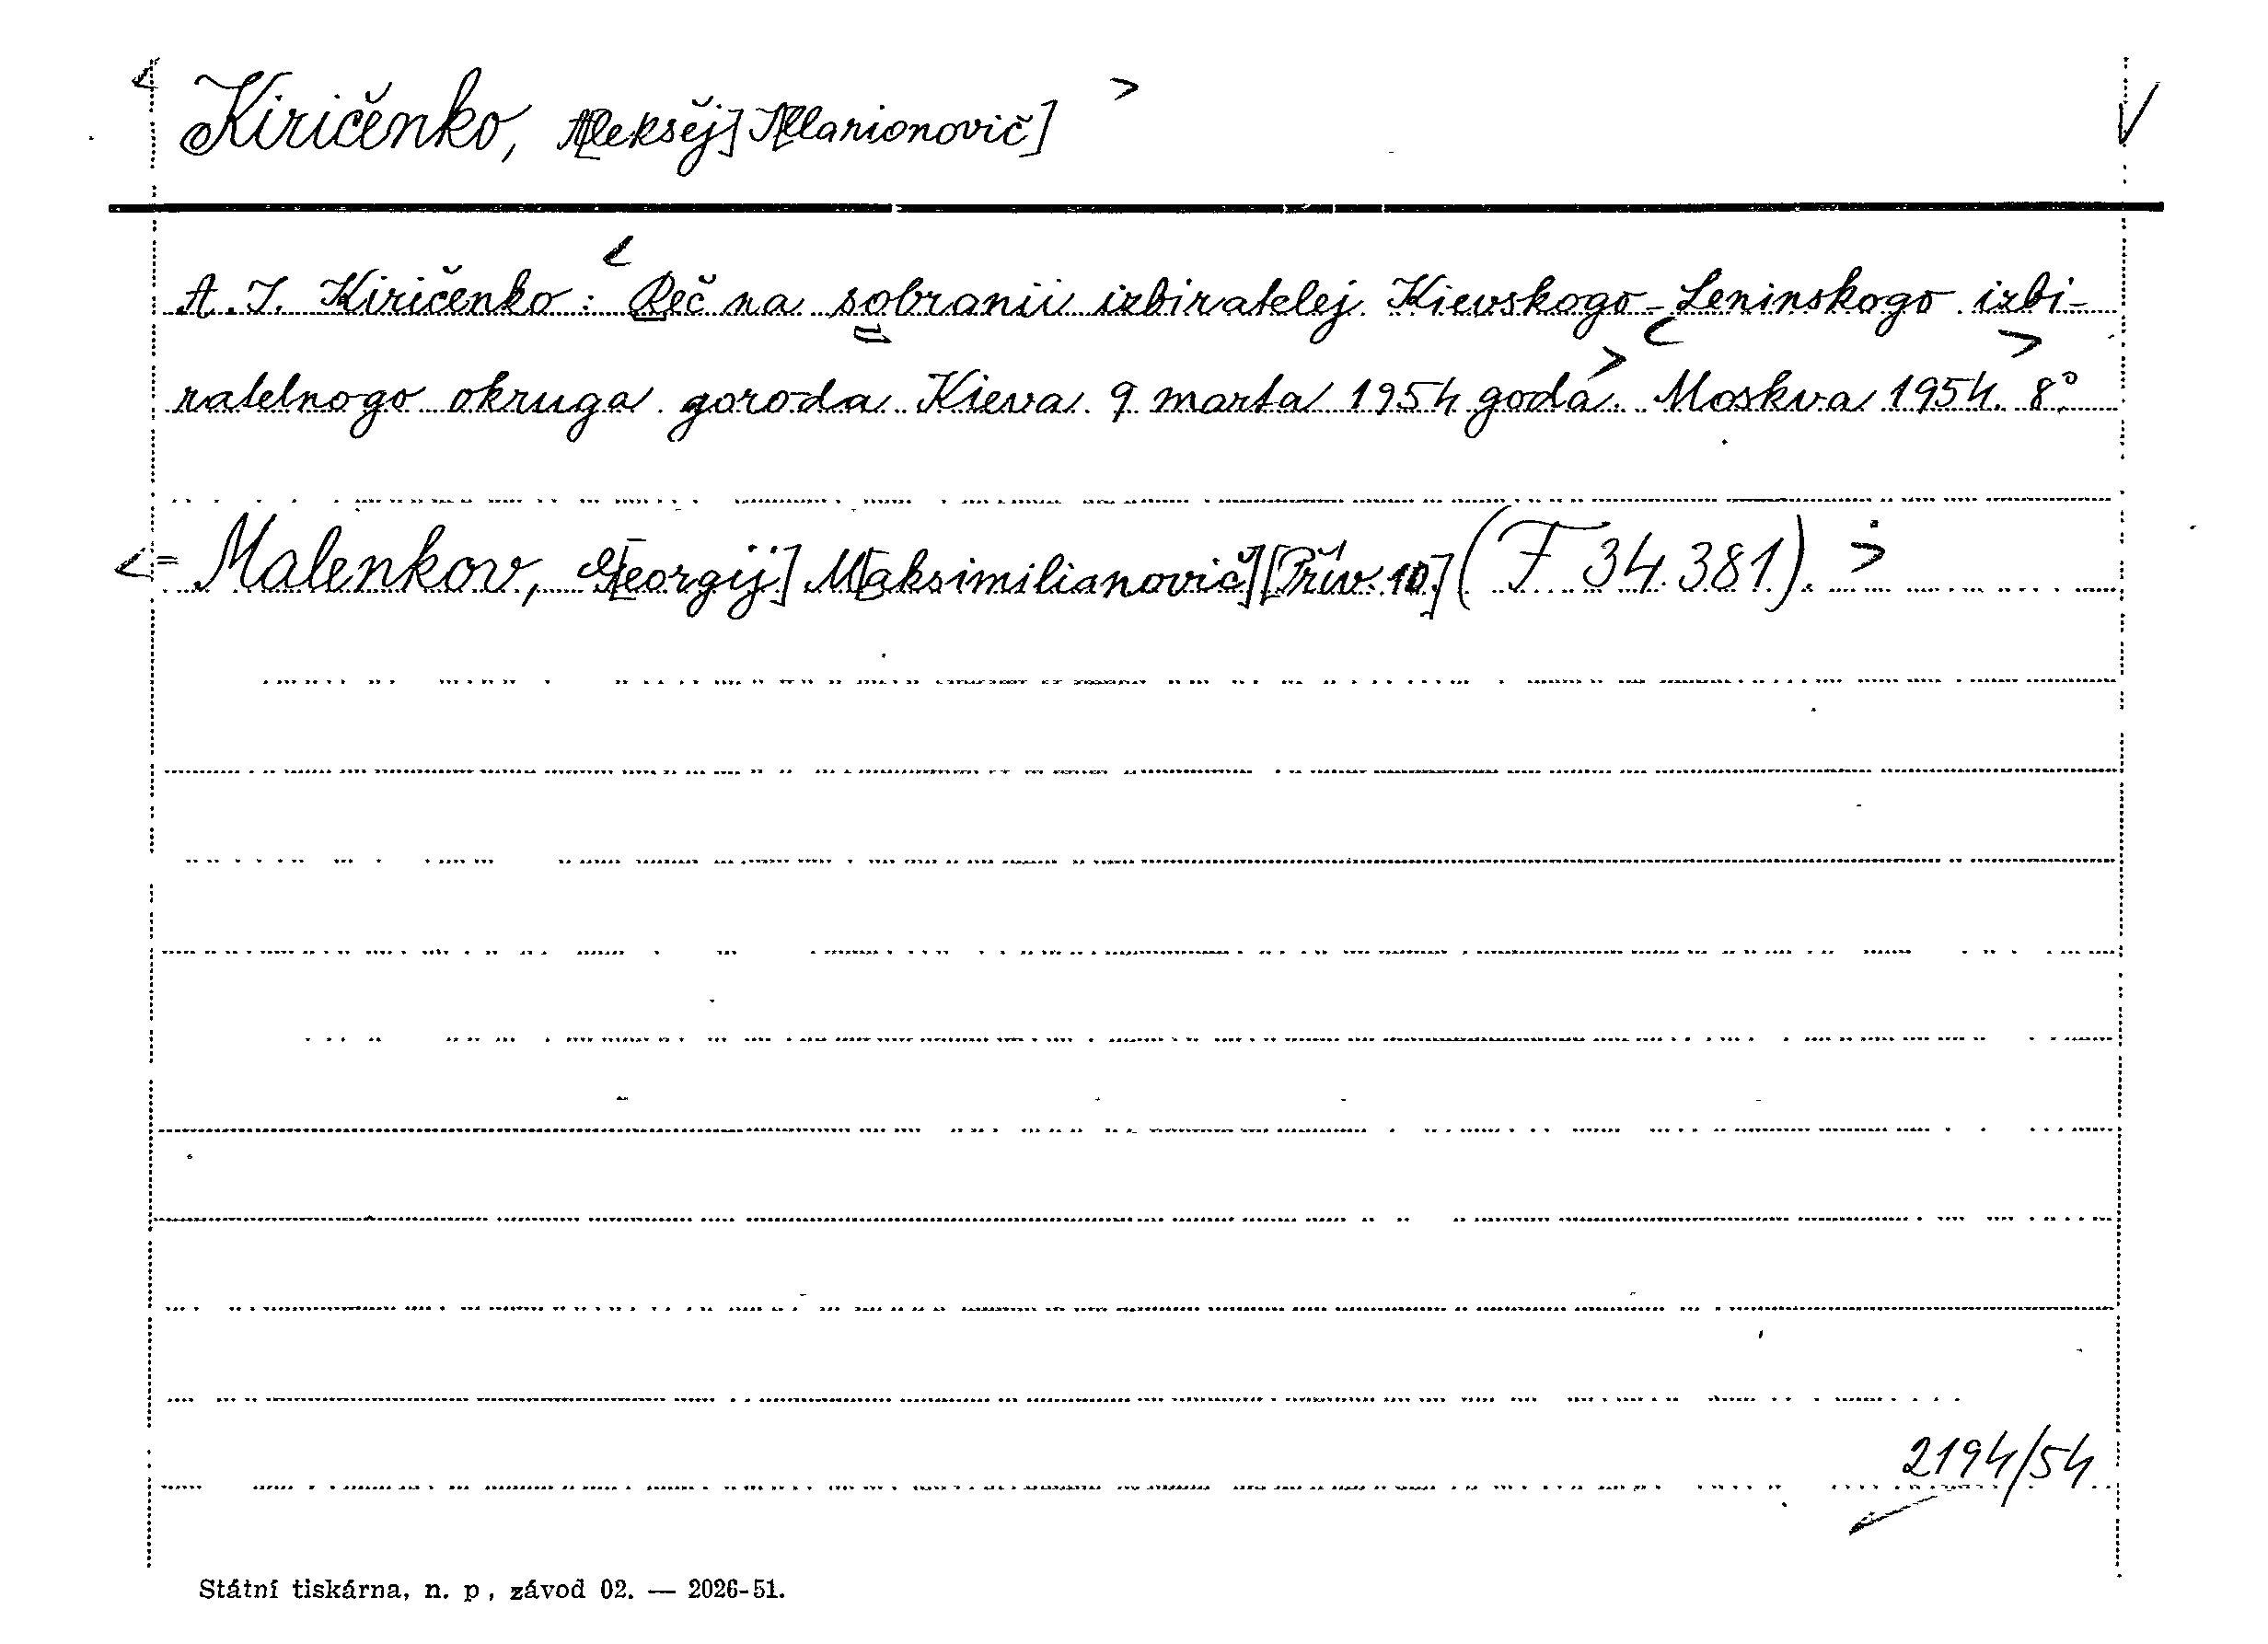 < Kiričenko, A[leksěj] I[llarionovič] >
A. I. Kiričenko: Reč na sobranii izbiratelej Kievskogo-Leninskogo izbi-
ratelnogo okruga goroda Kieva 9 marta 1954 goda. Moskva 1954. 8°.
<= Malenkov, G[eorgij] M[aksimilianovič] [Přív. 10] (F 34.381). >
2194/54
Státní tiskárna, n. p., závod 02. — 2026-51.